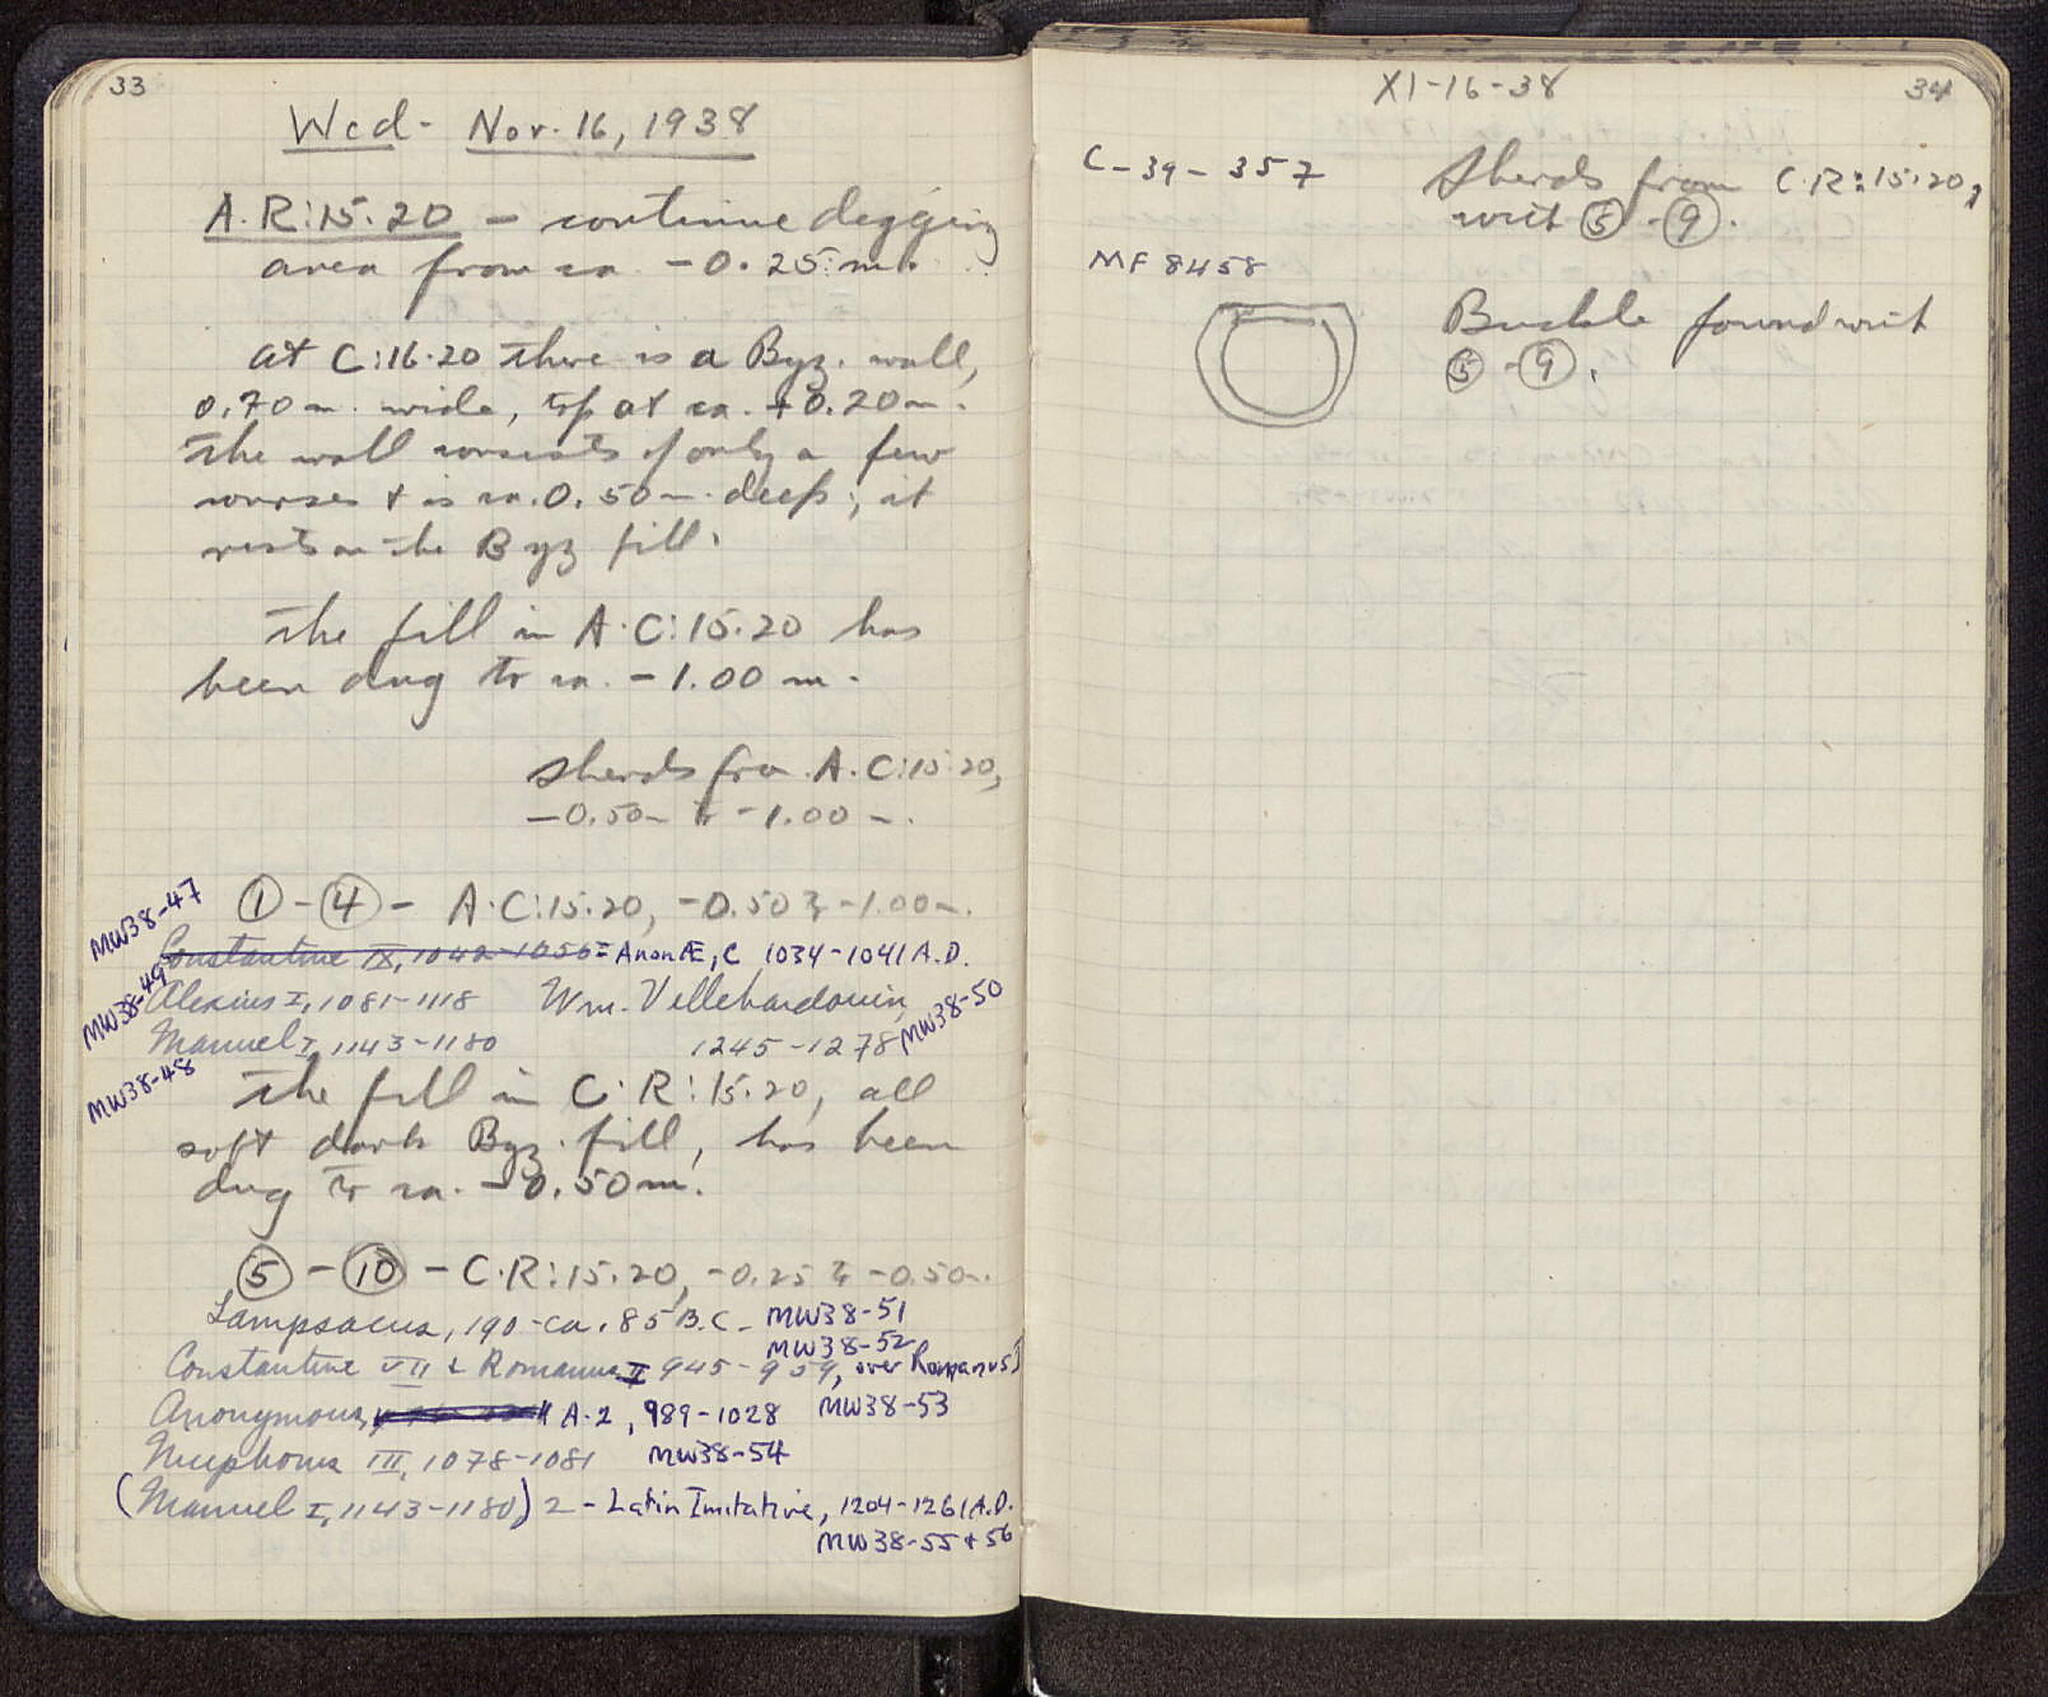 33
Wed - Nov. 16, 1938
A.R:15.20 - continue digging
area from ca. -0.25 m.
At C:16.20 there is a Byz. wall,
0.70 m. wide, top at ca. +0.20 m.
The wall consists of only a few
courses + is ca. 0.50 m. deep; it
rests on the Byz fill.
The fill in A.C:15.20 has
been dug to ca. -1.00 m.
Sherds from A.C:15.20,
-0.50 m to -1.00 m.
MW38-47
① - ④ - A.C:15.20, -0.50 to -1.00 m.
Constantine IX, 1042-1056 = Anon Æ, C 1034-1041 A.D.
MW38-49
Alexius I, 1081-1118 Wm. Villehardouin,
Manuel I, 1143-1180 1245-1278 MW38-50
MW38-48
The fill in C.R:15.20, all
soft dark Byz. fill, has been
dug to ca. -0.50 m.
⑤ - ⑩ - C.R:15.20, -0.25 to -0.50 m.
Lampsacus, 190-ca. 85 B.C. MW38-51
MW38-52
Constantine VII & Romanus II 945-959, over Romanus I
Anonymous, A-2, 989-1028 MW38-53
Nicephorus III, 1078-1081 MW38-54
(Manuel I, 1143-1180) 2 - Latin Imitative, 1204-1261 A.D.
MW38-55 + 56
XI-16-38
34
C-39-357
Sherds from C.R:15.20,
with ⑤ - ⑨.
MF 8458
Buckle found with
⑤ - ⑨.